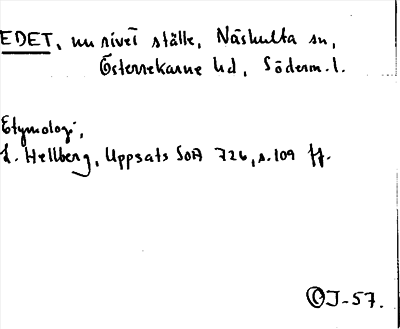 EDET, nu rivet ställe, Näshulta sn,
Österrekarne hd, Söderm. l.
Etymologi,
L. Hellberg, Uppsats SOÄ 726, s. 109 ff.
J-57.